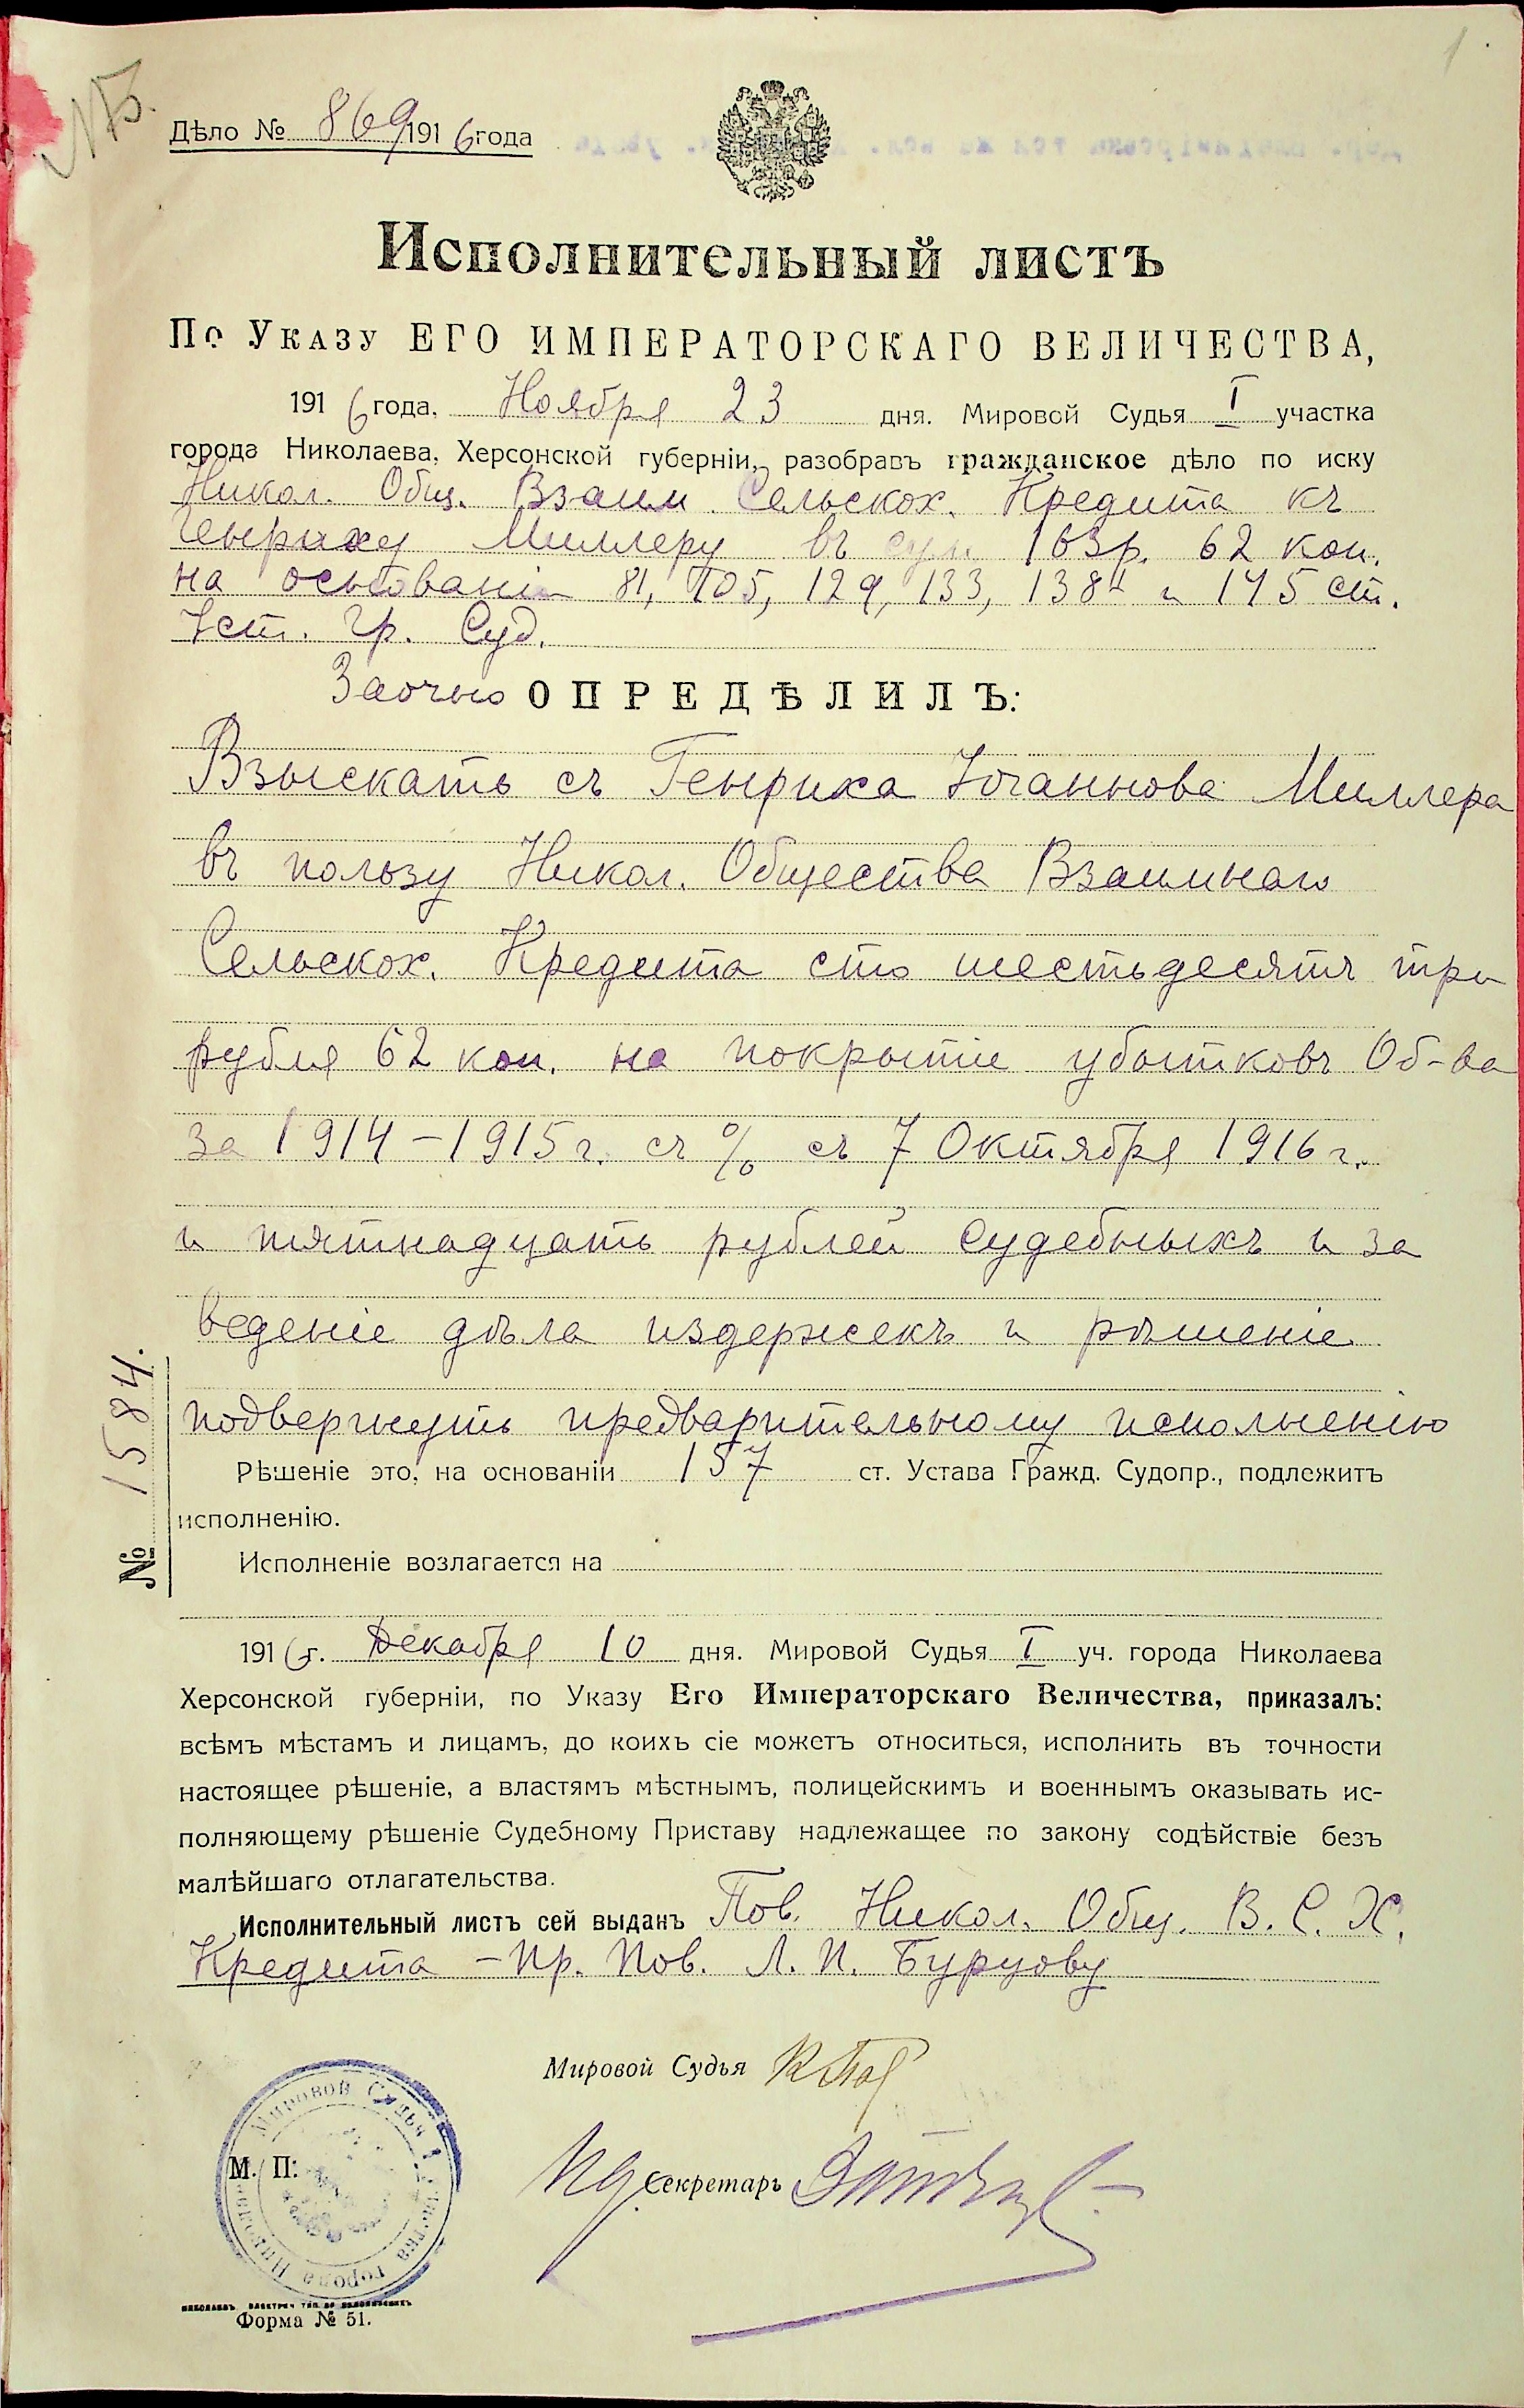 1
NB.
Дѣло № 869 1916 года
Исполнительный листъ
По Указу ЕГО ИМПЕРАТОРСКАГО ВЕЛИЧЕСТВА,
1916 года, Ноября 23 дня. Мировой Судья I участка
города Николаева, Херсонской губерніи, разобравъ гражданское дѣло по иску
Никол. Общ. Взаим. Сельскох. Кредита къ
Генриху Миллеру въ сум. 163 р. 62 коп.
на основаніи 81, 105, 129, 133, 138¹ и 145 ст.
Уст. Гр. Суд.
Заочно ОПРЕДѢЛИЛЪ:
Взыскать съ Генриха Іоганнова Миллера
въ пользу Никол. Общества Взаимнаго
Сельскох. Кредита сто шестьдесятъ три
рубля 62 коп. на покрытіе убытковъ Об-ва
за 1914-1915 г. съ % съ 7 Октября 1916 г.
и пятнадцать рублей судебныхъ и за
веденіе дѣла издержекъ и рѣшеніе
подвергнуть предварительному исполненію
Рѣшеніе это, на основаніи 157 ст. Устава Гражд. Судопр., подлежитъ
исполненію.
Исполненіе возлагается на
№ 1584.
1916 г. Декабря 10 дня. Мировой Судья I уч. города Николаева
Херсонской губерніи, по Указу Его Императорскаго Величества, приказалъ:
всѣмъ мѣстамъ и лицамъ, до коихъ сіе можетъ относиться, исполнить въ точности
настоящее рѣшеніе, а властямъ мѣстнымъ, полицейскимъ и военнымъ оказывать ис-
полняющему рѣшеніе Судебному Приставу надлежащее по закону содѣйствіе безъ
малѣйшаго отлагательства.
Исполнительный листъ сей выданъ Пов. Никол. Общ. В. С. Х.
Кредита - Пр. Пов. Л. И. Бурцову
Мировой Судья
М. П.
Мировой Судья I участка города
Секретарь
Форма № 51.